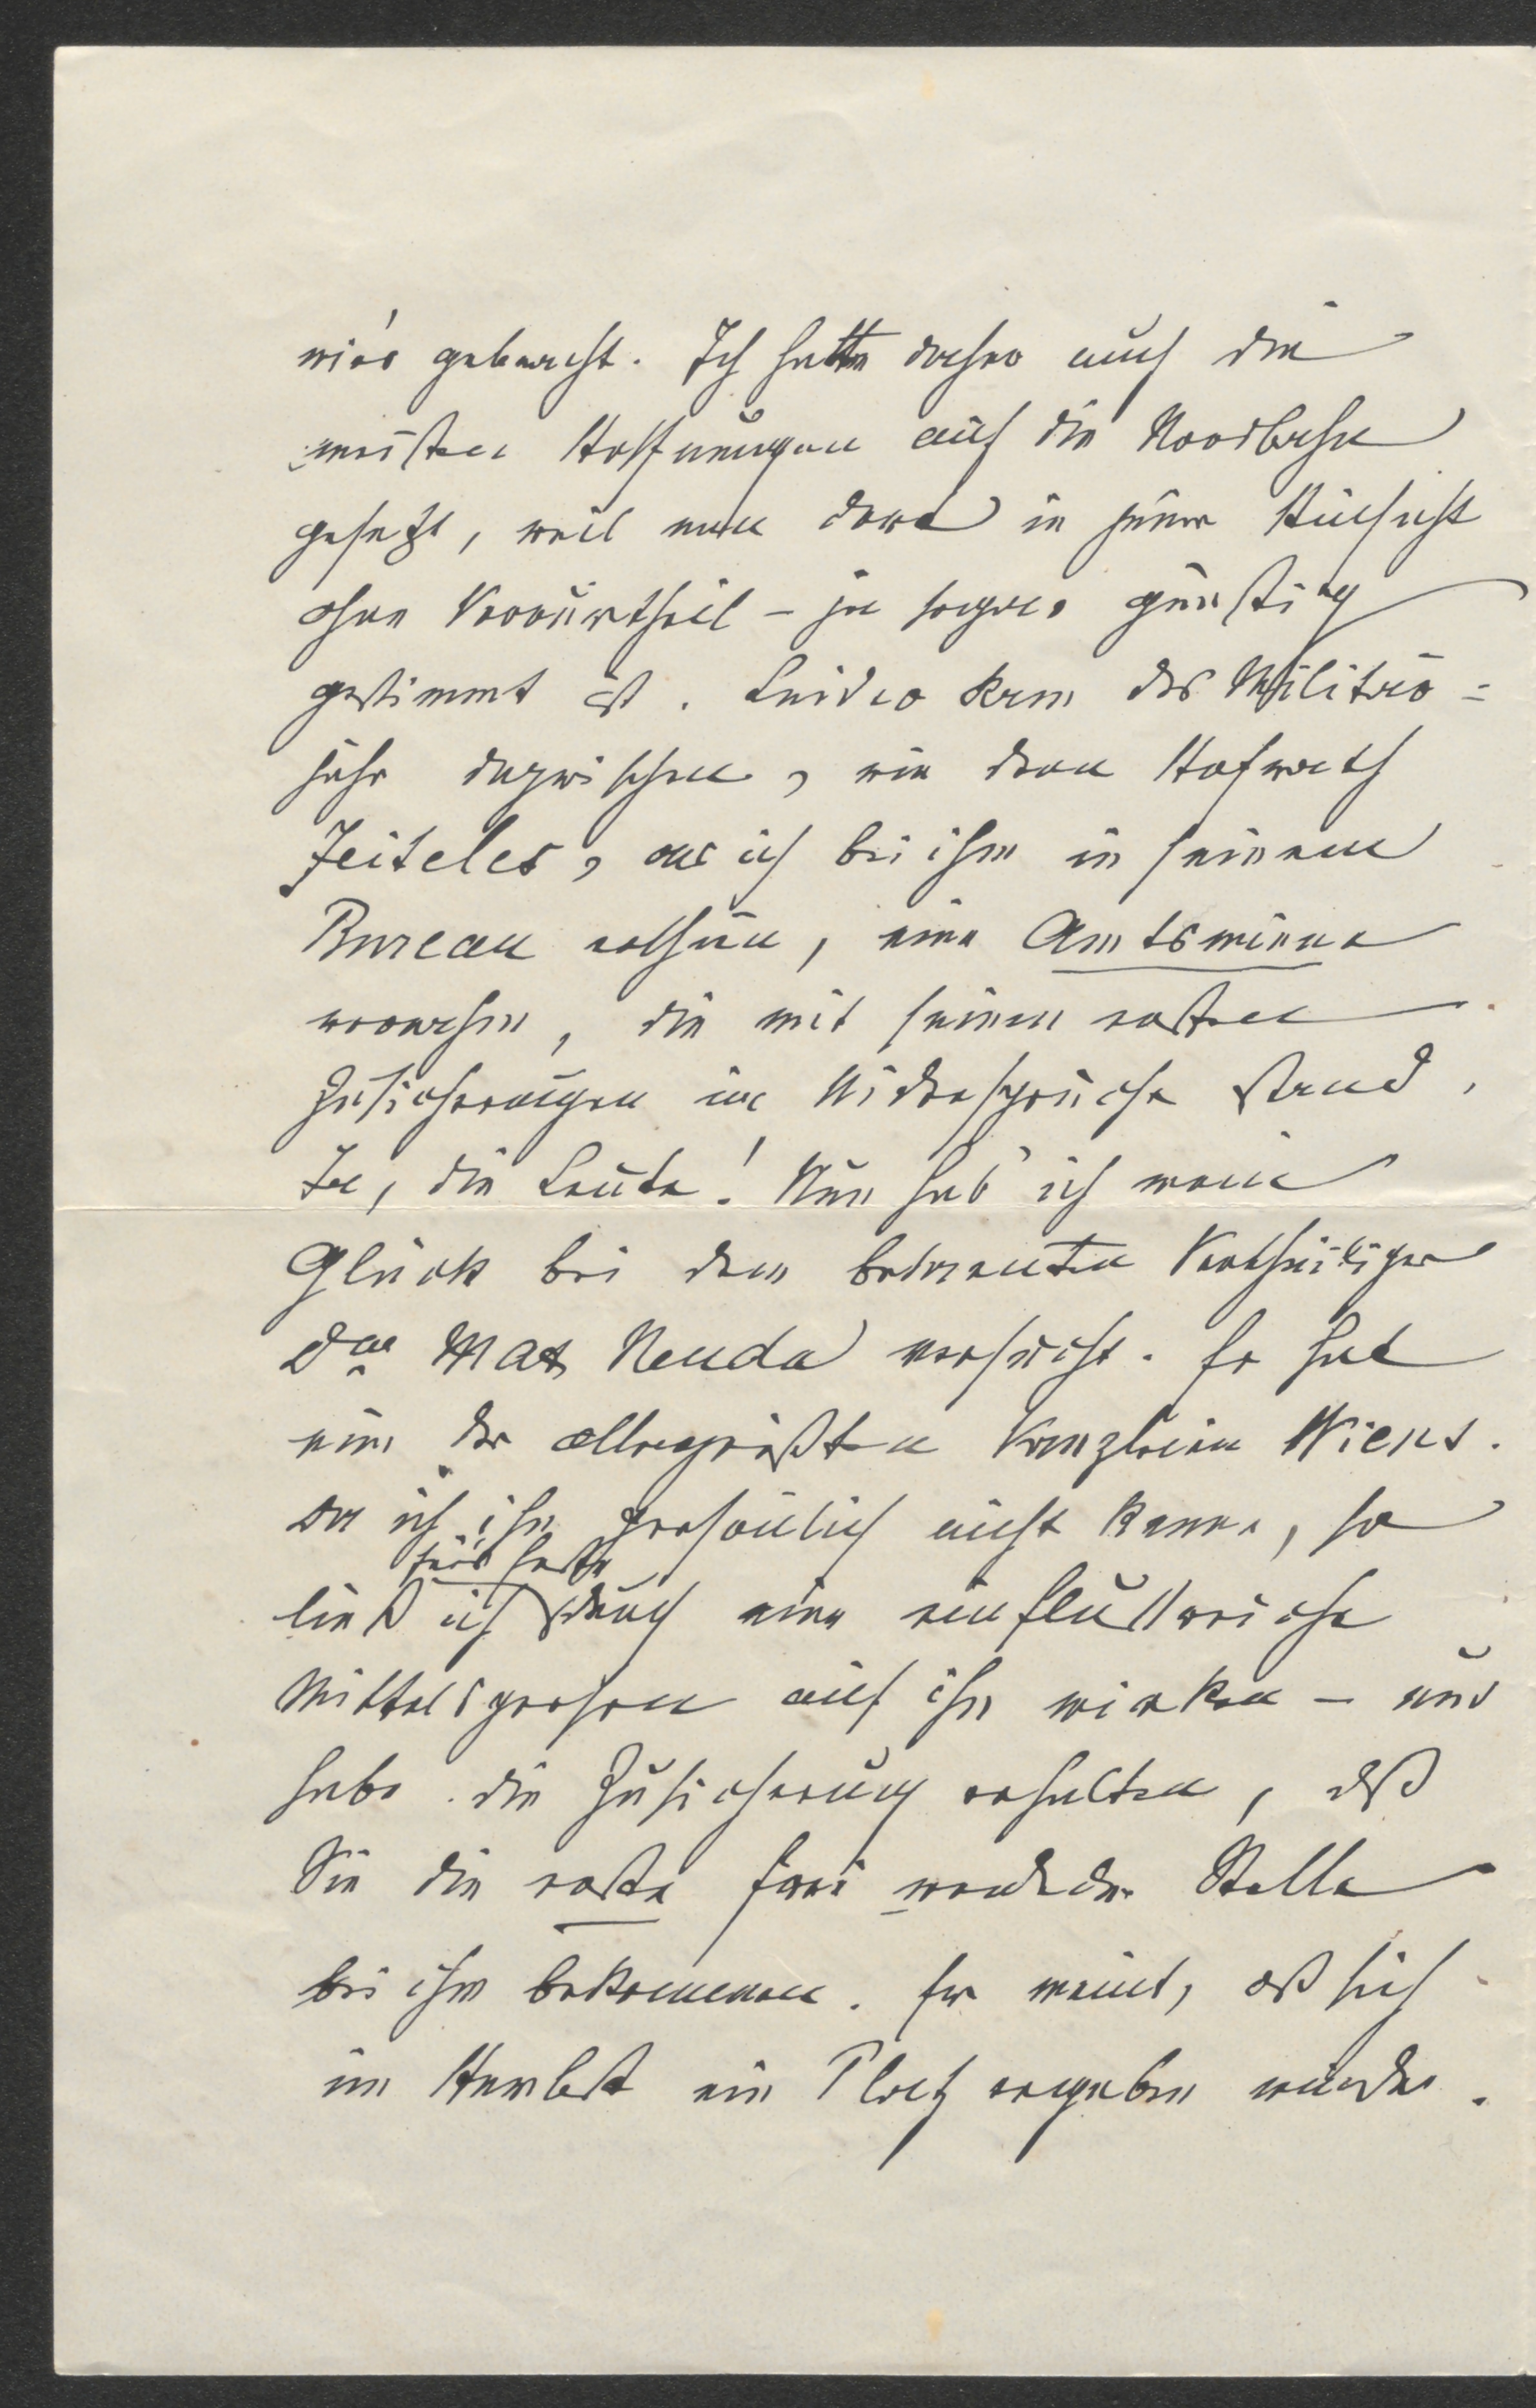 wird gebracht. Ich hatte daher auch die
meisten Hoffnungen auf die Nordbahn
gesetzt, weil man dort in jener Hinsicht
ohne Vorurtheil – ja sogar günstig
gestimmt ist. Leider kam das Militär=
jahr dazwischen, wie denn Hofrath
Jeiteles, als ich bei ihm in seinem
Bureau erschien, eine Amtsmiene
, die mit seinen ersten
Zusicherungen im Widerspruche stand.
Ja, die Leute! Nun hab' ich mein
Glück bei dem bekannten Vertheidiger
Dor Max Neuda versucht. Er hat
eine der allergrößten Kanzleien Wiens.
Da ich ihn persönlich nicht kenne, so
fürs Erste
ließ ich durch eine einflußreiche
Mittelsperson auf ihn wirken – und
habe die Zusicherung erhalten, dß
Sie die erste frei werdende Stelle
bei ihm bekommen. Er meint, dß sich
im Herbst ein Platz ergeben würde.